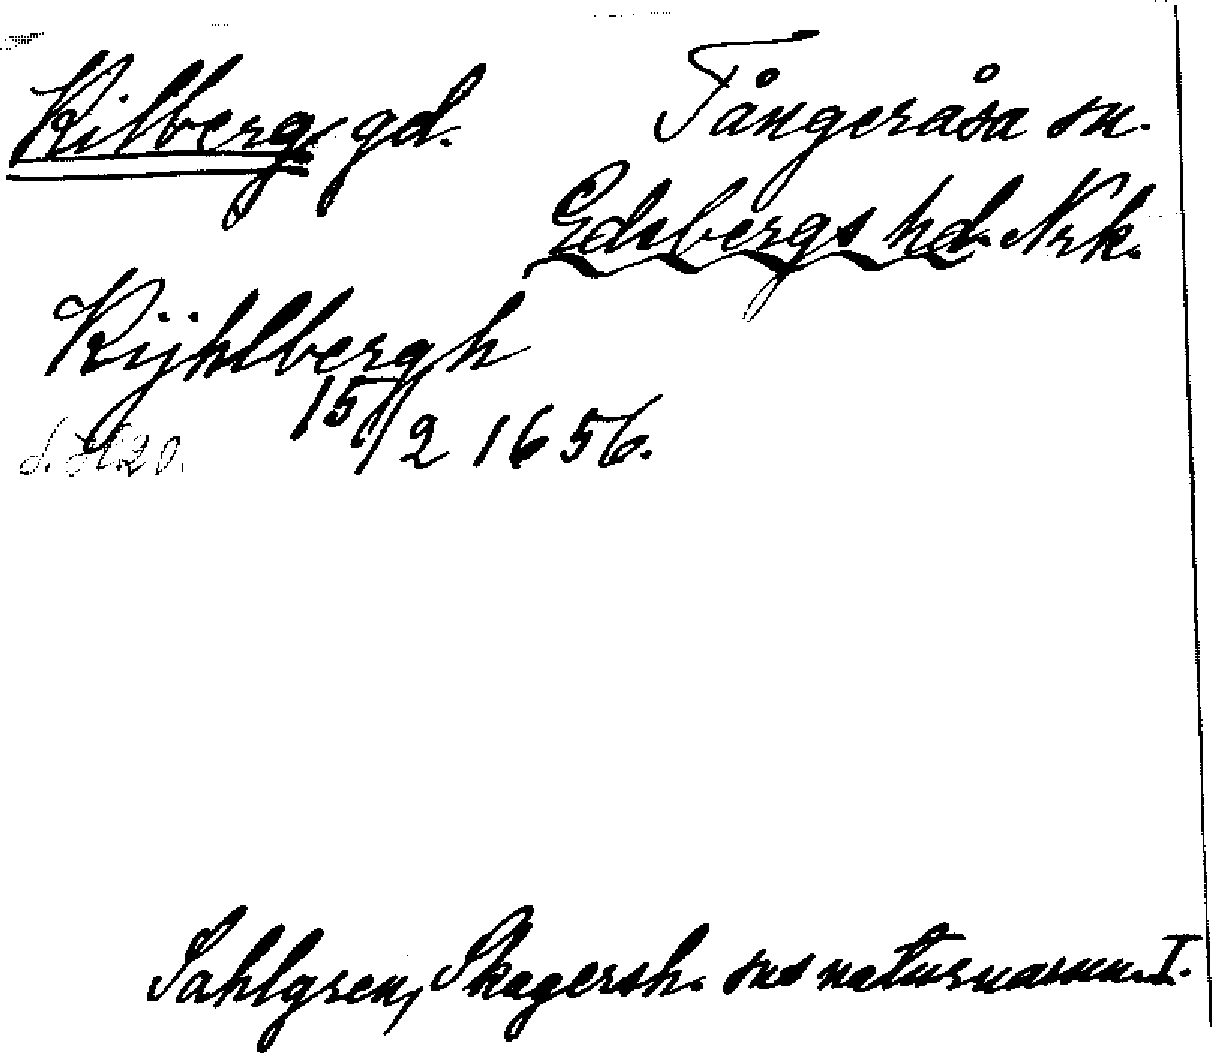 Kilberg, gd. Tångeråsa sn.
Edsbergs hd. Nrk.
Kÿhlbergh
15/2 1656.
s. 220.
Sahlgren, Skagersh. sns naturnamn. I.